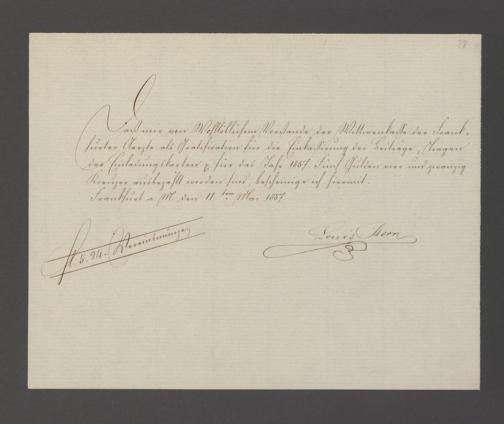 28
Daß mir von Wohllöblichem Vorstande der Wittwenkasse der Frank-
furter Aerzte als Gratification für die Einkassirung der Beiträge, Tragen
der Einladungskarten p. für das Jahr 1857 Fünf Gulden vier und zwanzig
Kreuzer ausbezahlt worden sind, bescheinige ich hiermit.
Frankfurt a. M. den 11ten Mai 1857
Louis
fl. 5. 24.